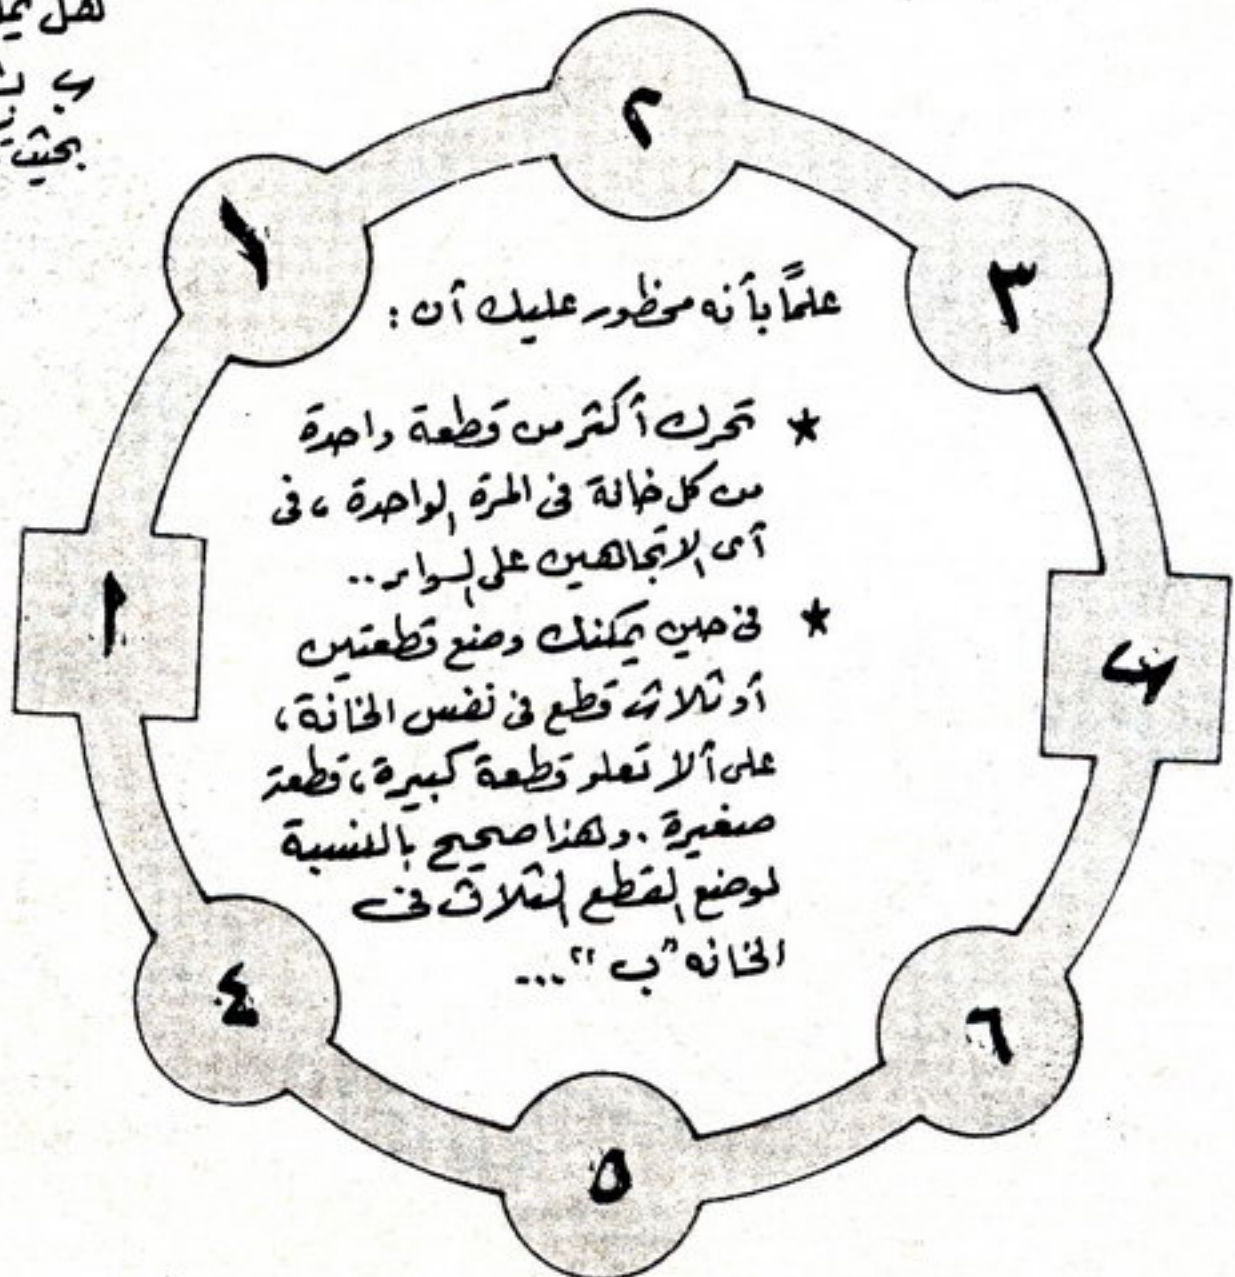 بحيث
٢
١
٣
علمًا بأنه محظور عليك أن :
★ تحرك أكثر من قطعة واحدة
من كل خانة فى المرة الواحدة ، فى
أى الاتجاهين على السواء ..
أ
ب
★ فى حين يمكنك وضع قطعتين
أو ثلاث قطع فى نفس الخانة ،
على ألا تعلو قطعة كبيرة ، قطعة
صغيرة . وهذا صحيح بالنسبة
لوضع القطع الثلاث فى
الخانه "ب" ...
٤
٦
٥